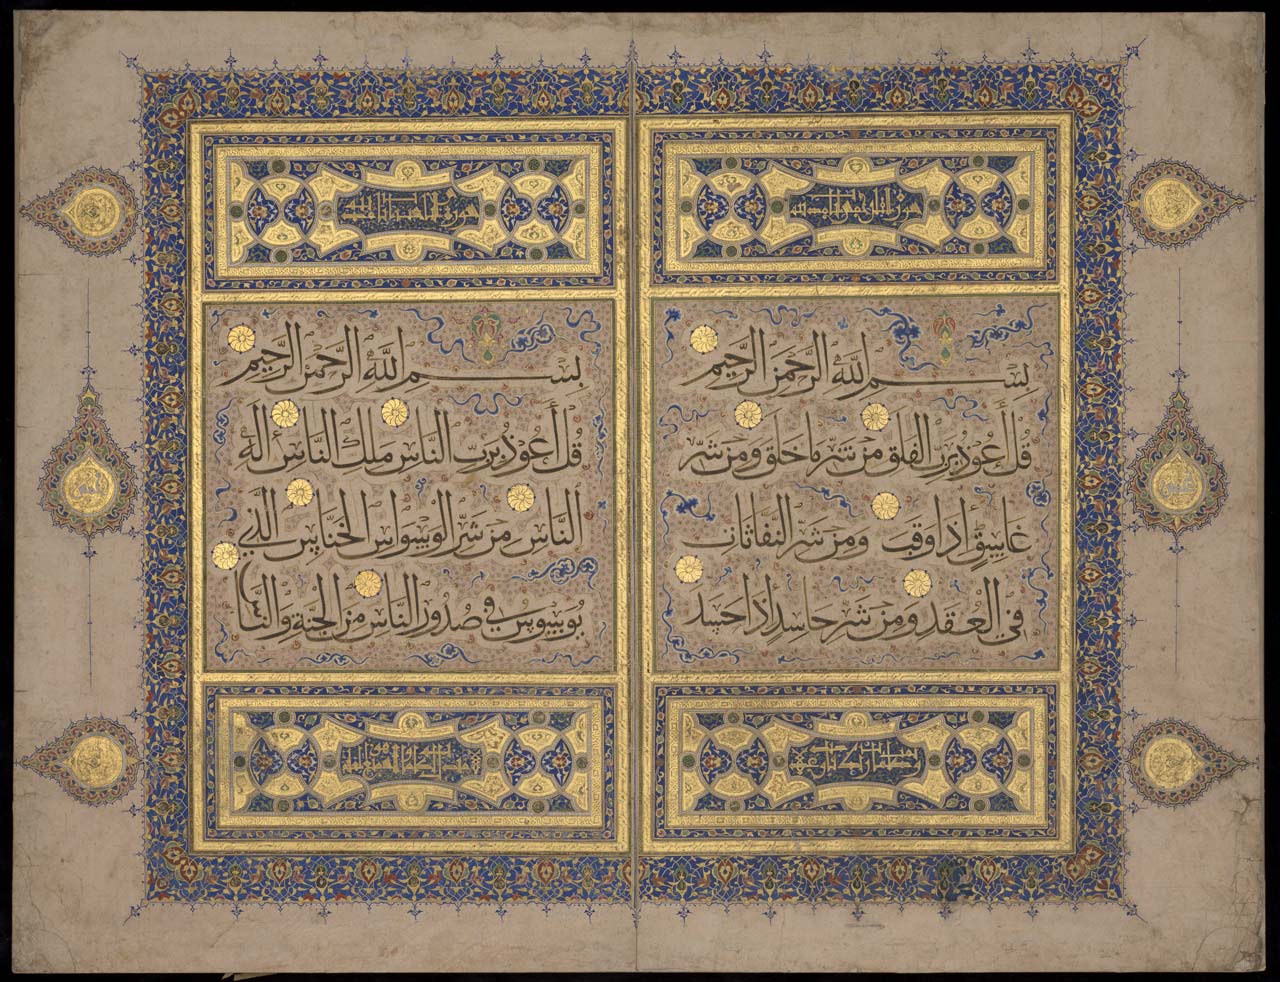 سورة
بِسْمِ اللَّهِ الرَّحْمٰنِ الرَّحِيمِ
قُلْ أَعُوذُ بِرَبِّ الْفَلَقِ مِنْ شَرِّ مَا خَلَقَ وَمِنْ شَرِّ
غَاسِقٍ إِذَا وَقَبَ وَمِنْ شَرِّ النَّفَّاثَاتِ
فِي الْعُقَدِ وَمِنْ شَرِّ حَاسِدٍ إِذَا حَسَدَ
سورة
بِسْمِ اللَّهِ الرَّحْمٰنِ الرَّحِيمِ
قُلْ أَعُوذُ بِرَبِّ النَّاسِ مَلِكِ النَّاسِ إِلٰهِ
النَّاسِ مِنْ شَرِّ الْوَسْوَاسِ الْخَنَّاسِ الَّذِي
يُوَسْوِسُ فِي صُدُورِ النَّاسِ مِنَ الْجِنَّةِ وَالنَّاسِ